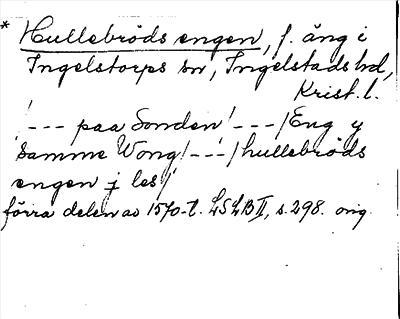 * Hullebröds engen, f. äng i
Ingelstorps sn, Ingelstads hd,
Krist. l.
!--- paa Sonden! ---/Eng y
Samme Wong! ---/hullebröds
engen j les!/
förra delen av 1570-t. LSLB II, s. 298. orig.